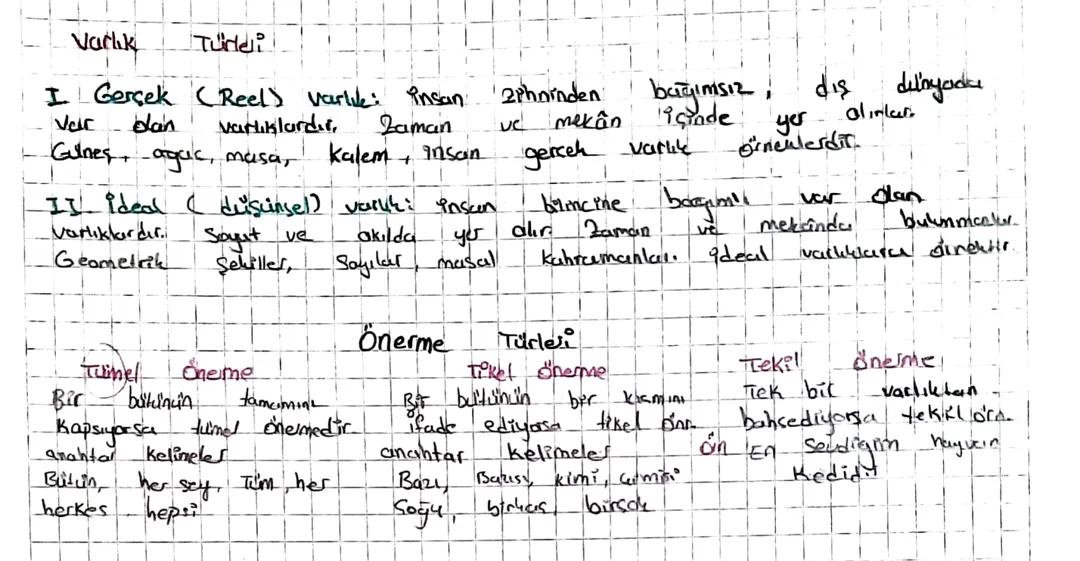 Varlık Türleri
I Gerçek (Reel) varlık: insan zihninden bağımsız, dış dünyada
var olan varlıklardır. Zaman ve mekân içinde yer alırlar.
Güneş, ağaç, masa, kalem, insan gerçek varlık örneklerdir.
II İdeal (düşünsel) varlık: insan bilincine bağımlı var olan
varlıklardır. Soyut ve akılda yer alır. Zaman ve mekânda bulunmazlar.
Geometrik Şekiller, Sayılar, masal kahramanları ideal varlıklara örnektir.
Önerme Türleri
Tümel Önerme
Bir bütünün tamamını
Kapsıyorsa tümel önermedir
anahtar Kelimeler
Bütün, her şey, Tüm, her
herkes hepsi
Tikel Önerme
Bir bütünün bir kısmını
ifade ediyorsa tikel önr.
anahtar Kelimeler
Bazı, Bazısı, kimi, kimisi
Çoğu, birkaç, birçok
Tekil önerme
Tek bir varlıktan
bahsediyorsa tekil önr.
Ön En Sevdiğim hayvan
Kedidir